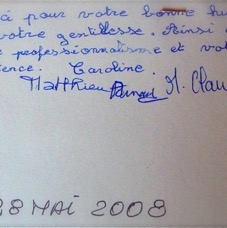 à pour votre bonne hu
votre gentillesse. Ainsi
professionnalisme et vot
ience. Caroline.
Matthieu M. Clau
28 MAI 2008